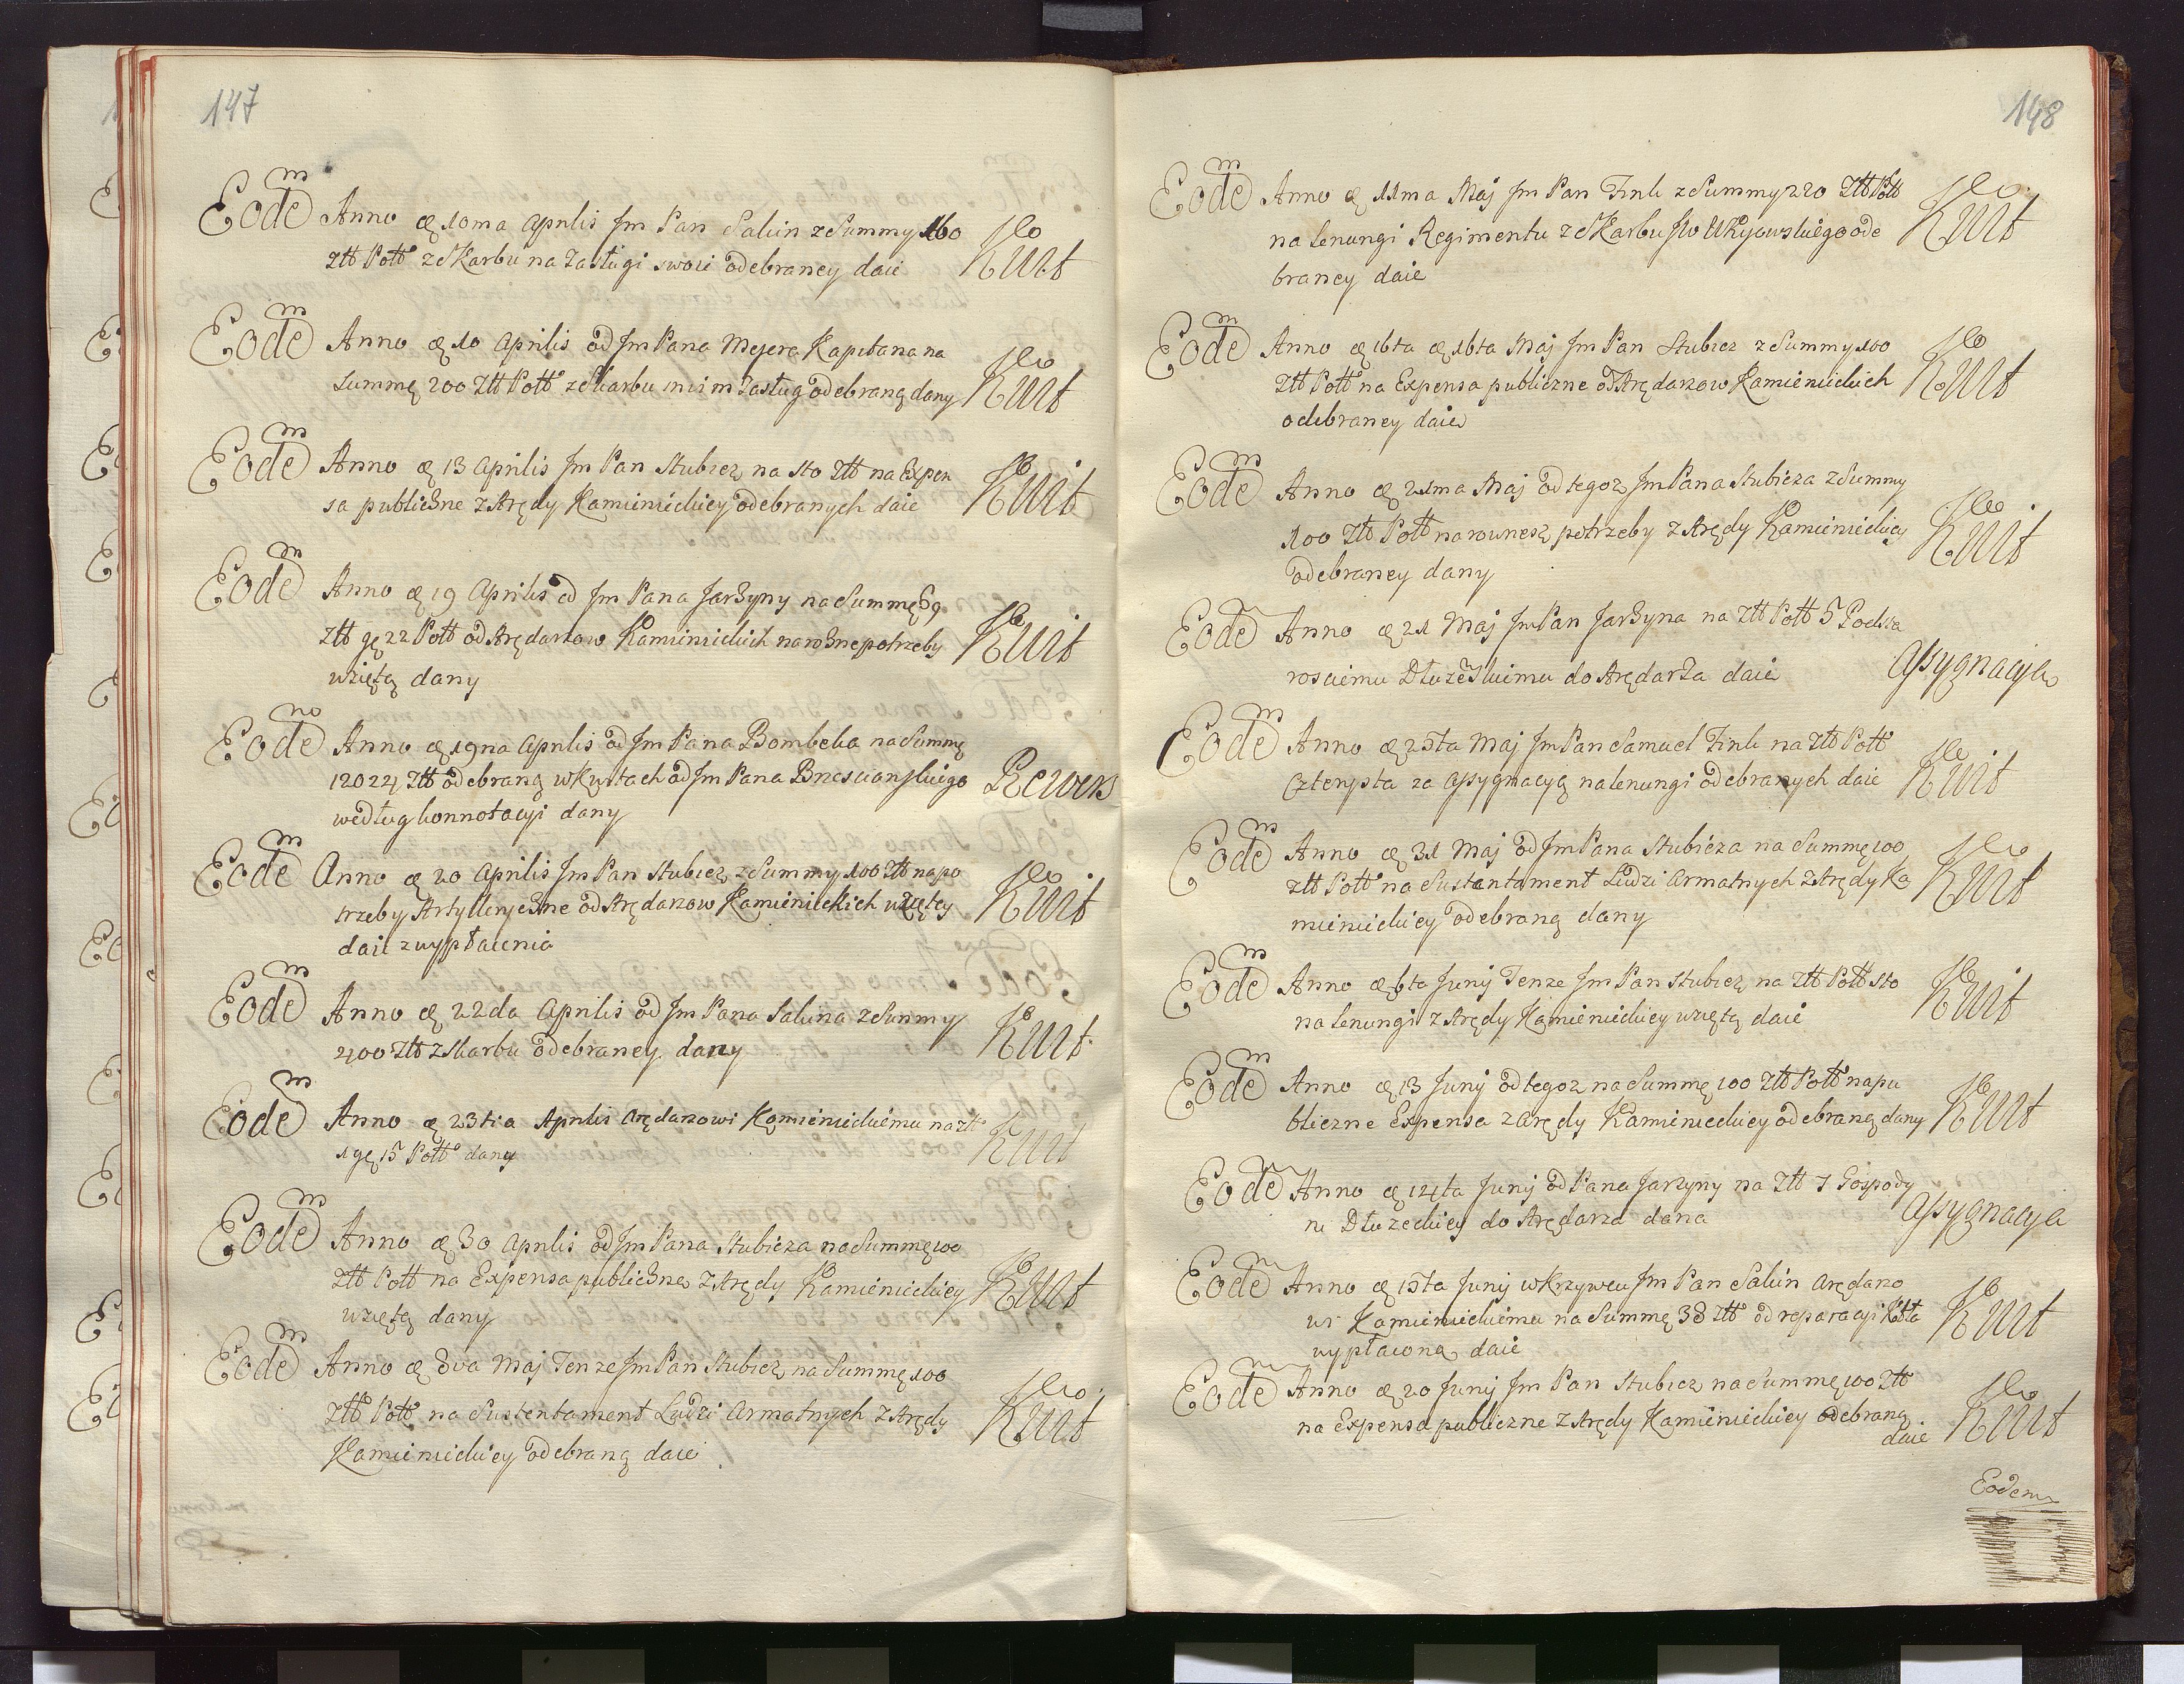 147
Eodem Anno ae 10ma Aprilis Jm Pan Saluin z Summy 160
Ztt Pott ze Skarbu na Zasługi swoie odebraney daie Kwit
Eodem Anno ae 10 Aprilis od Jm Pana Mejera Kapitana na
Summę 200 Ztt Pott ze Skarbu Zasług odebraną dany Kwit
Eodem Anno ae 13 Aprilis Jm Pan Stubicz na sto Ztt na Expen
sa publiczne z Arędy Kamienieckiey odebranych daie Kwit
Eodem Anno ae 19 Aprilis od Jm Pana Jarzyny na Summę 59
Ztt gę 22 Pott od Arędarzow Kamienieckich na rozne potrzeby Kwit
wziętą dany
Eodem Anno ae 19na Aprilis od Jm Pana Bombeka na Summę
12024 Ztt odebraną w Kwitach od Jm Pana Brzescianskiego Rewers
według konnotacyi dany
Eodem Anno ae 20 Aprilis Jm Pan Stubicz z Summy 100 Ztt na po
trzeby Artylleryczne od Arędarzow Kamienieckich wziętey Kwit
daie z wypłacenia
Eodem Anno ae 22da Aprilis od Jm Pana Saluina z Summy
400 Ztt z Skarbu odebraney dany Kwit
Eodem Anno ae 23tia Aprilis Arędarzowi Kamienieckiemu na Ztt
1 gę 15 Pott dany Kwit
Eodem Anno ae 30 Aprilis od Jm Pana Stubicza na Summę 100
Ztt Pott na Expensa publiczne z Arędy Kamienieckiey Kwit
wziętą dany
Eodem Anno ae 3va Maj Tenze Jm Pan Stubicz na Summę 100
Ztt Pott na Sustentament Ludzi Armatnych z Arędy Kwit
Kamienieckiey odebraną daie
148
Eodem Anno ae 11ma Maj Jm Pan Fink z Summy 220 Ztt Pott
na Lenungi Regimentu z Skarbu Jw Ukijowskiego ode Kwit
braney daie
Eodem Anno ae 16ta ae 16ta Maj Jm Pan Stubicz z Summy 100
Ztt Pott na Expensa publiczne od Arędarzow Kamienieckich Kwit
odebraney daie
Eodem Anno ae 21ma Maj od tegoz Jm Pana Stubicza z Summy
100 Ztt Pott na rownesz potrzeby z Arędy Kamienieckiey Kwit
odebraney dany
Eodem Anno ae 21 Maj Jm Pan Jarzyna na Ztt Pott 5 Podsta
rosciemu Dłuzewskiemu do Arędarza daie Assygnacyia
Eodem Anno ae 25ta Maj Jm Pan Samuel Fink na Ztt Pott
Czterysta za Assygnacyą na lenungi odebranych daie Kwit
Eodem Anno ae 31 Maj od Jm Pana Stubicza na Summę 100
Ztt Pott na Sustentament Ludzi Armatnych z Arędy Ka Kwit
mienieckiey odebraną dany
Eodem Anno ae 6ta Junij Tenze Jm Pan Stubicz na Ztt Pott sto
na Lenungi z Arędy Kamienieckiey wziętą daie Kwit
Eodem Anno ae 13 Junij od tegoz na Summę 100 Ztt Pott na pu
bliczne Expensa z Arędy Kamienieckiey odebraną dany Kwit
Eodem Anno ae 14ta Junij od Pana Jarzyny na Ztt 7 Gospody
ni Dłuzeckiey do Arędarza dana Assygnacyia
Eodem Anno ae 15ta Junij w Krzywcu Jm Pan Saluin Arędarzo
wi Kamienieckiemu na Summę 38 Ztt od reparacyi Kotła Kwit
wypłaconą daie
Eodem Anno ae 20 Junij Jm Pan Stubicz na Summę 100 Ztt
na Expensa publiczne z Arędy Kamienieckiey odebraną Kwit
daie
Eodem